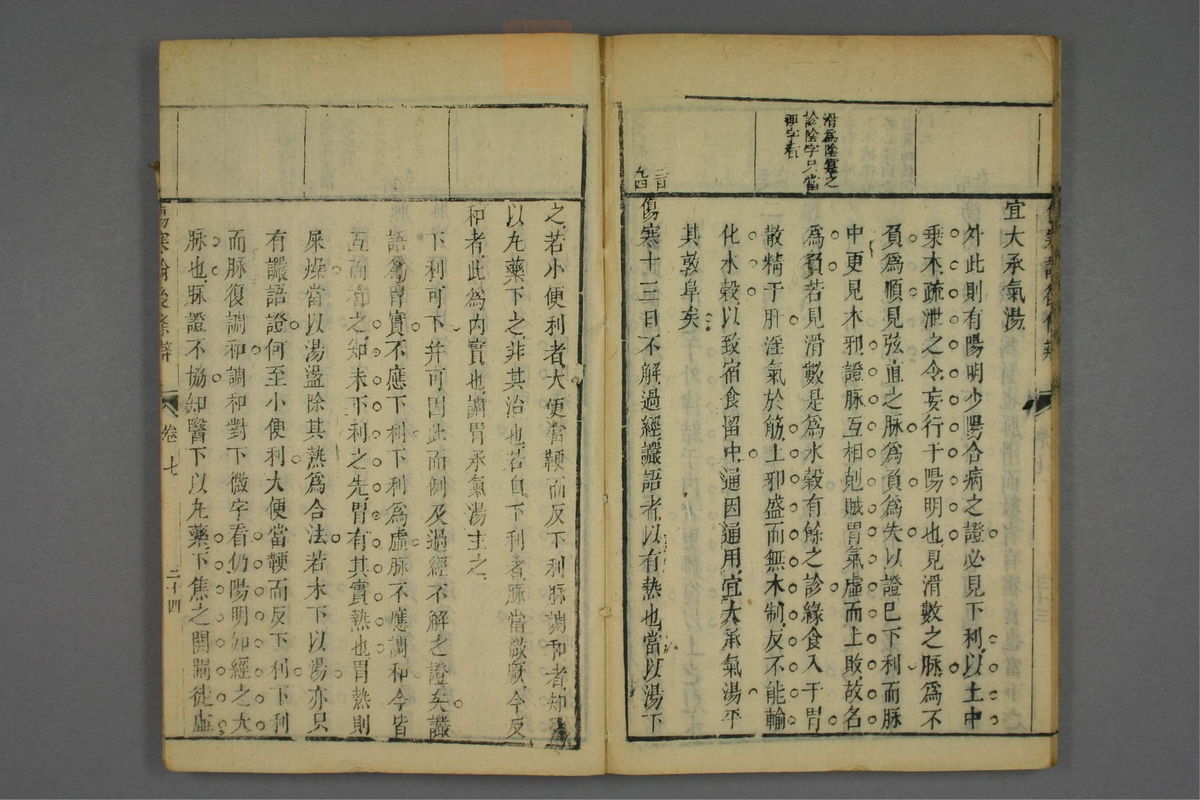 滑爲陰實之
診陰字只當
裡字看
宜大承氣湯
外此則有陽明少陽合病之證必見下利以土中
乗木疏泄之令妄行于陽明也見滑數之脉爲不
負爲順見弦直之脉爲負爲失以證已下利而脉
中更見木邪證脉互相剋賊胃氣虛而上敗故名
爲負若見滑數是爲水穀有餘之診緣食入于胃
散精于肝淫氣於筋土邪盛而無木制反不能輸
化水穀以致宿食留中通因通用宜大承氣湯平
其敦阜矣
二百
九四
傷寒十三日不解過經讝語者以有熱也當以湯下
之若小便利者大便當鞕而反下利脉調和者知醫
以丸藥下之非其治也若自下利者脉當微厥今反
和者此爲内實也調胃承氣湯主之
下利可下并可因此而例及過經不解之證矣讝
語爲胃實不應下利下利爲虛脉不應調和今皆
互而郤之知未下利之先胃有其實熱也胃熱則
屎燥當以湯盪滌其熱爲合法若未下以湯亦只
有讝語證何至小便利大便當鞕而反下利下利
而脉復調和調和對下微字看仍陽明如經之大
脉也脉證不協知醫下以丸藥下焦之關闢徒虛
傷寒論後條辨
卷七
二十四